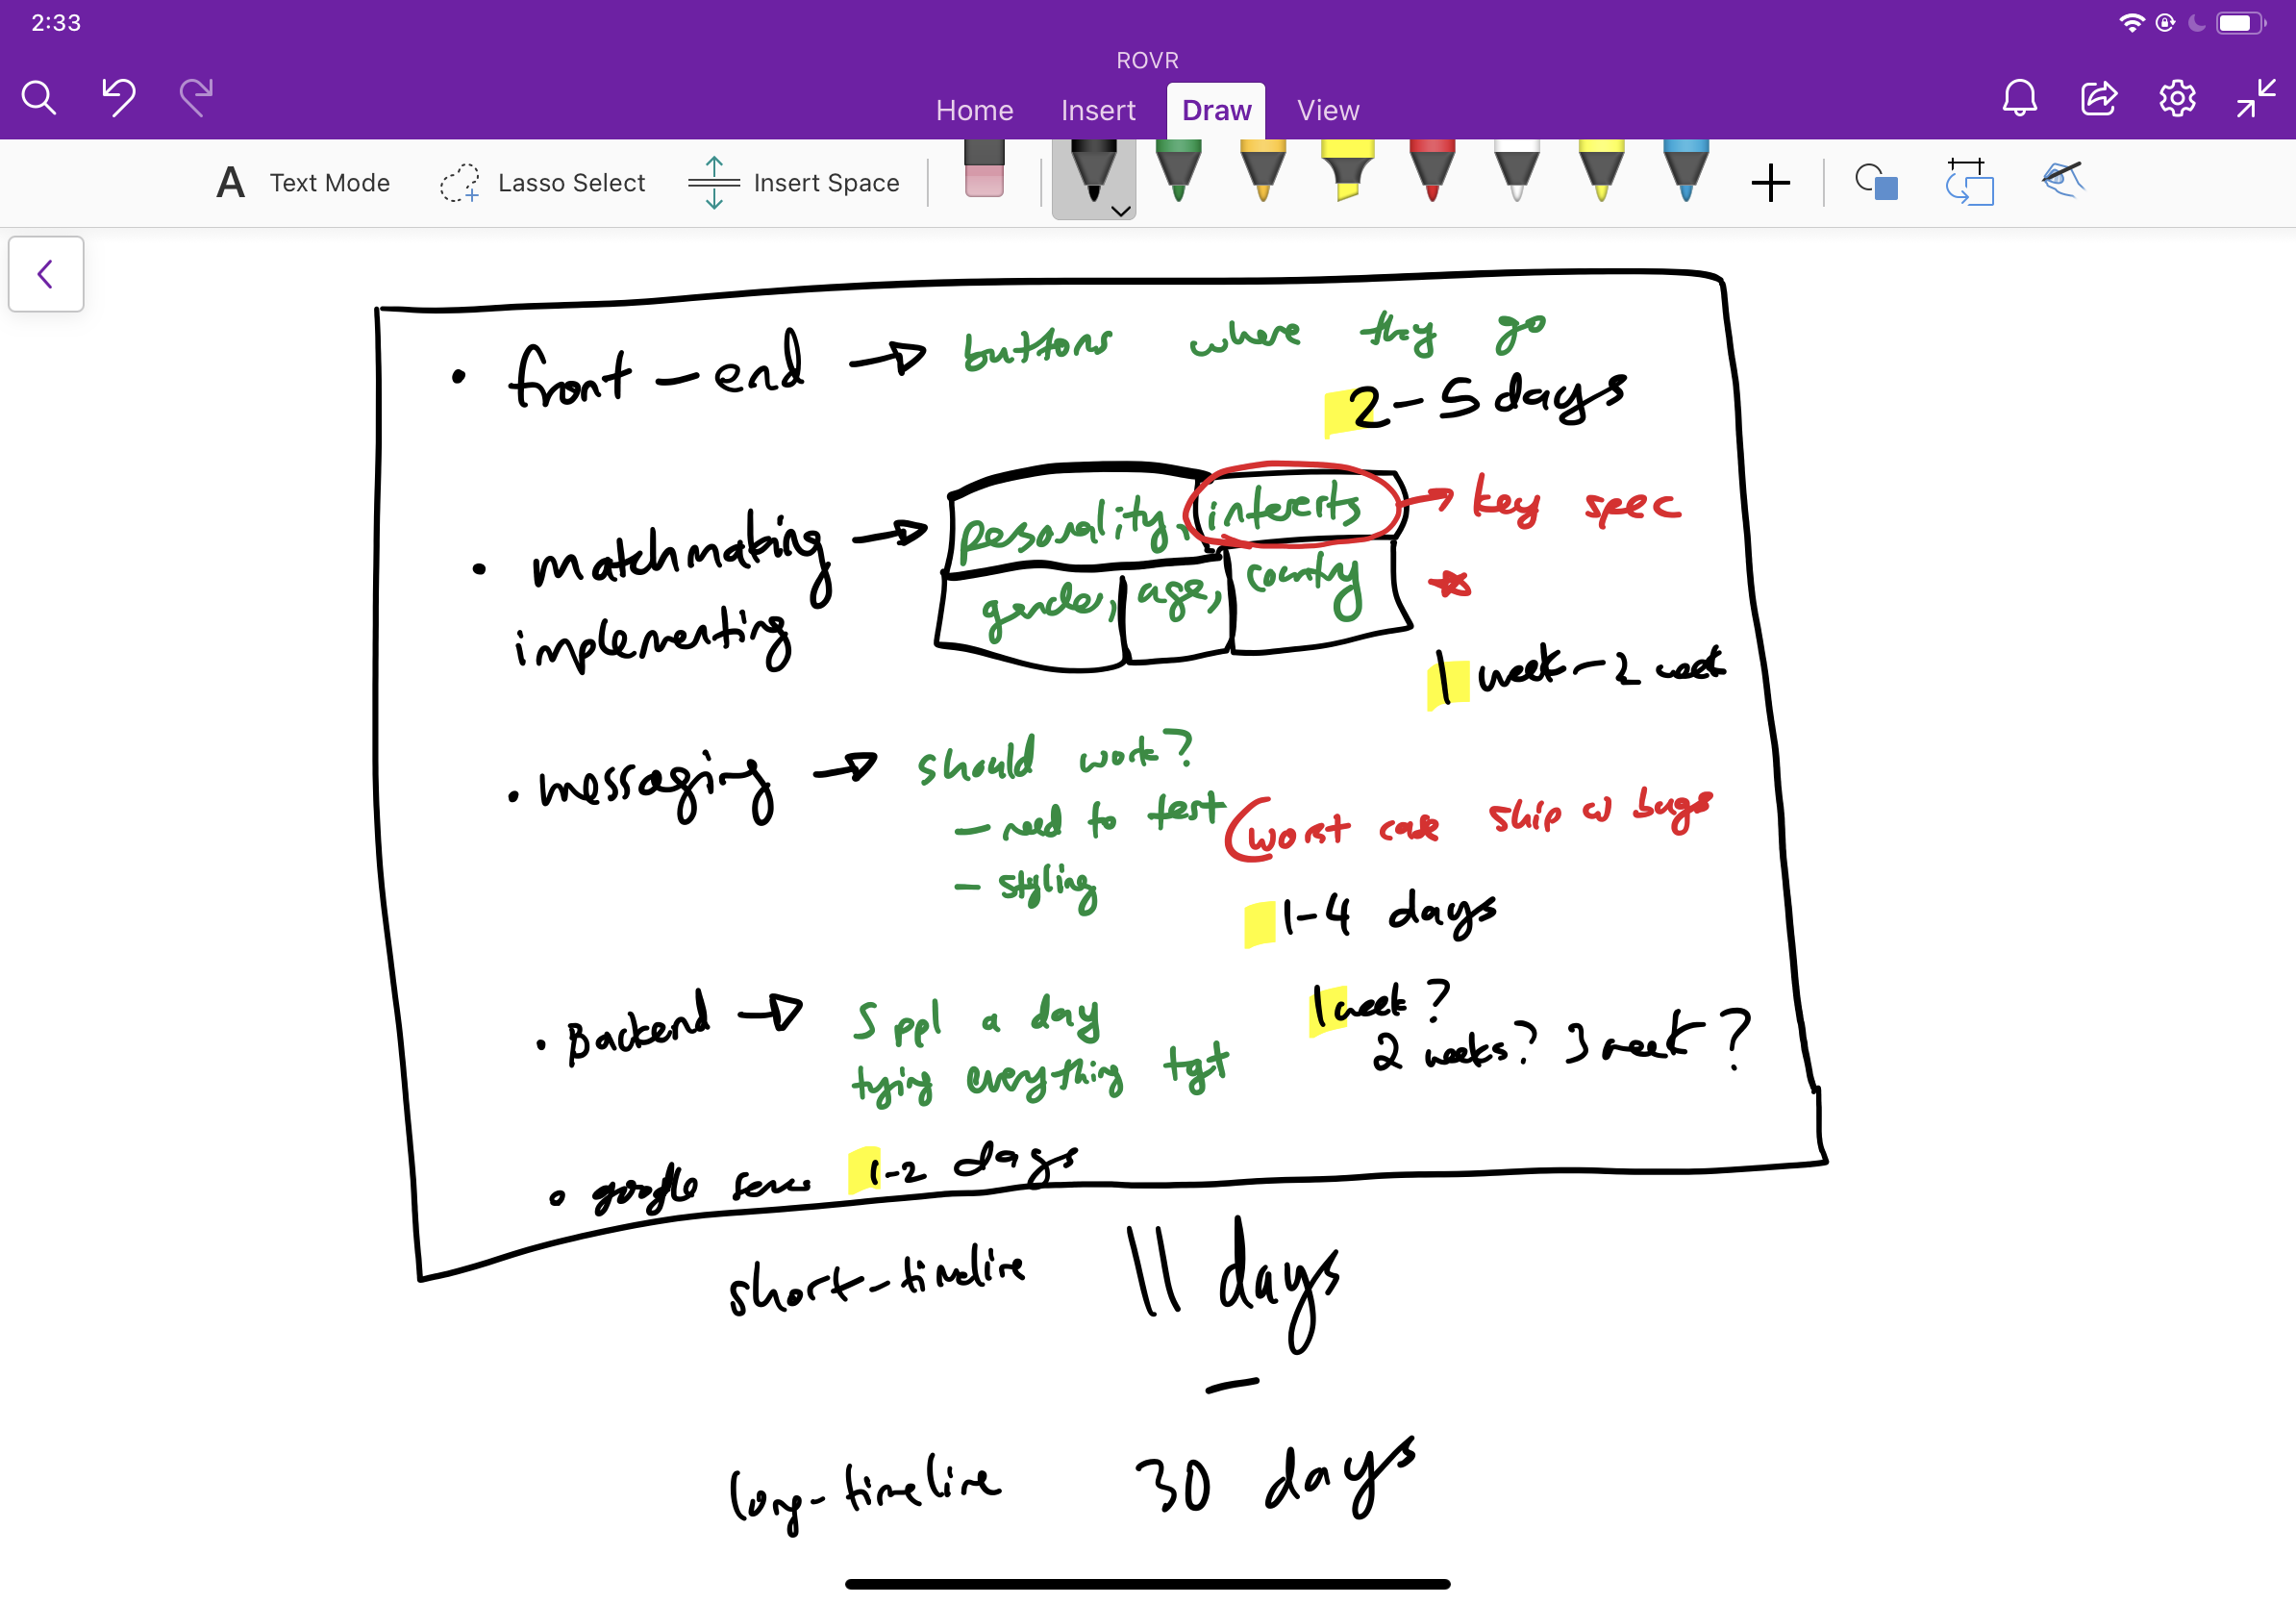 2:33
ROVR
Home Insert Draw View
A Text Mode Lasso Select Insert Space
• front-end → buttons where they go
2-5 days
• matchmaking → personality, interests → key spec
implementing gender, age, country
1 week-2 week
• messaging → should work?
- need to test (worst case ship w bugs
- styling
1-4 days
• Backend → 5 ppl a day 1 week?
tying everything tgt 2 weeks? 3 week?
• google 1-2 days
short-timeline 11 days
-
long-timeline 30 days